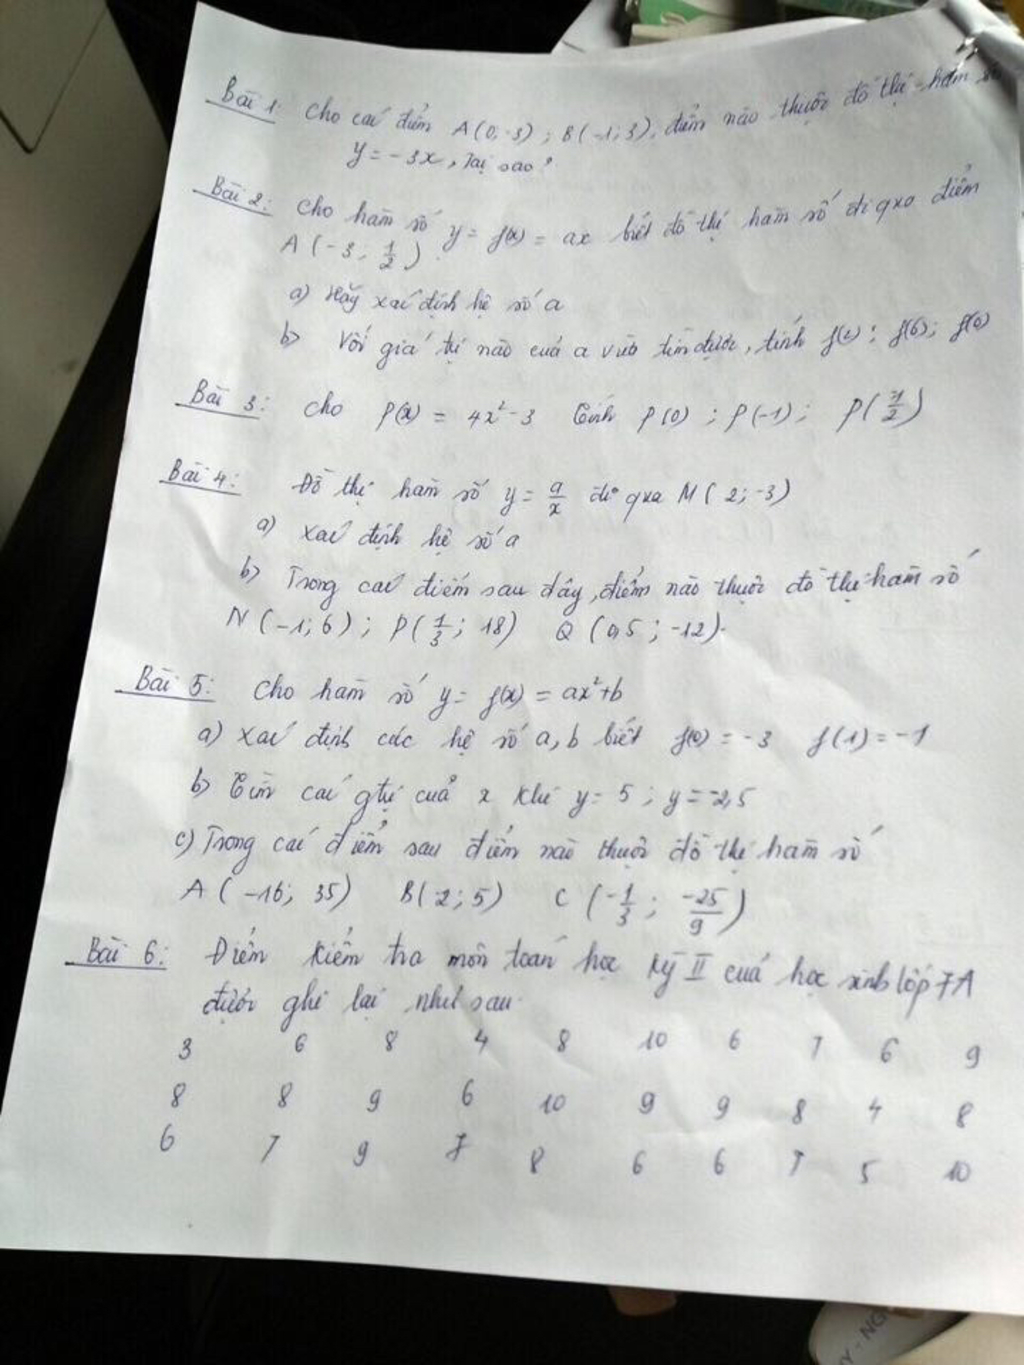 Bài 1: Cho các điểm A(0;-3); B(-1;3), điểm nào thuộc đồ thị hàm số
y = -3x, Tại sao?
Bài 2: Cho hàm số y = f(x) = ax biết đồ thị hàm số đi qua điểm
A(-3, 1/2).
a) Hãy xác định hệ số a
b) Với giá trị nào của a vừa tìm được, tính f(2); f(6); f(0)
Bài 3: Cho P(x) = 4x² - 3 tính P(0); P(-1); P(-1/2)
Bài 4: Đồ thị hàm số y = a/x đi qua M(2;-3)
a) Xác định hệ số a
b) Trong các điểm sau đây, điểm nào thuộc đồ thị hàm số
N(-1;6); P(1/3; 18) Q(0,5; -12).
Bài 5: Cho hàm số y = f(x) = ax²+b
a) Xác định các hệ số a, b biết f(0) = -3 f(1) = -1
b) Tìm các gtrị của x khi y = 5; y = -2,5
c) Trong các điểm sau điểm nào thuộc đồ thị hàm số
A(-16; 35) B(-2; 5) C(-1/3; -25/9)
Bài 6: Điểm kiểm tra môn toán học kỳ II của học sinh lớp 7A
được ghi lại như sau.
3 6 8 4 8 10 6 7 6 9
8 8 9 6 10 9 9 8 4 8
6 7 9 7 8 6 6 7 5 10